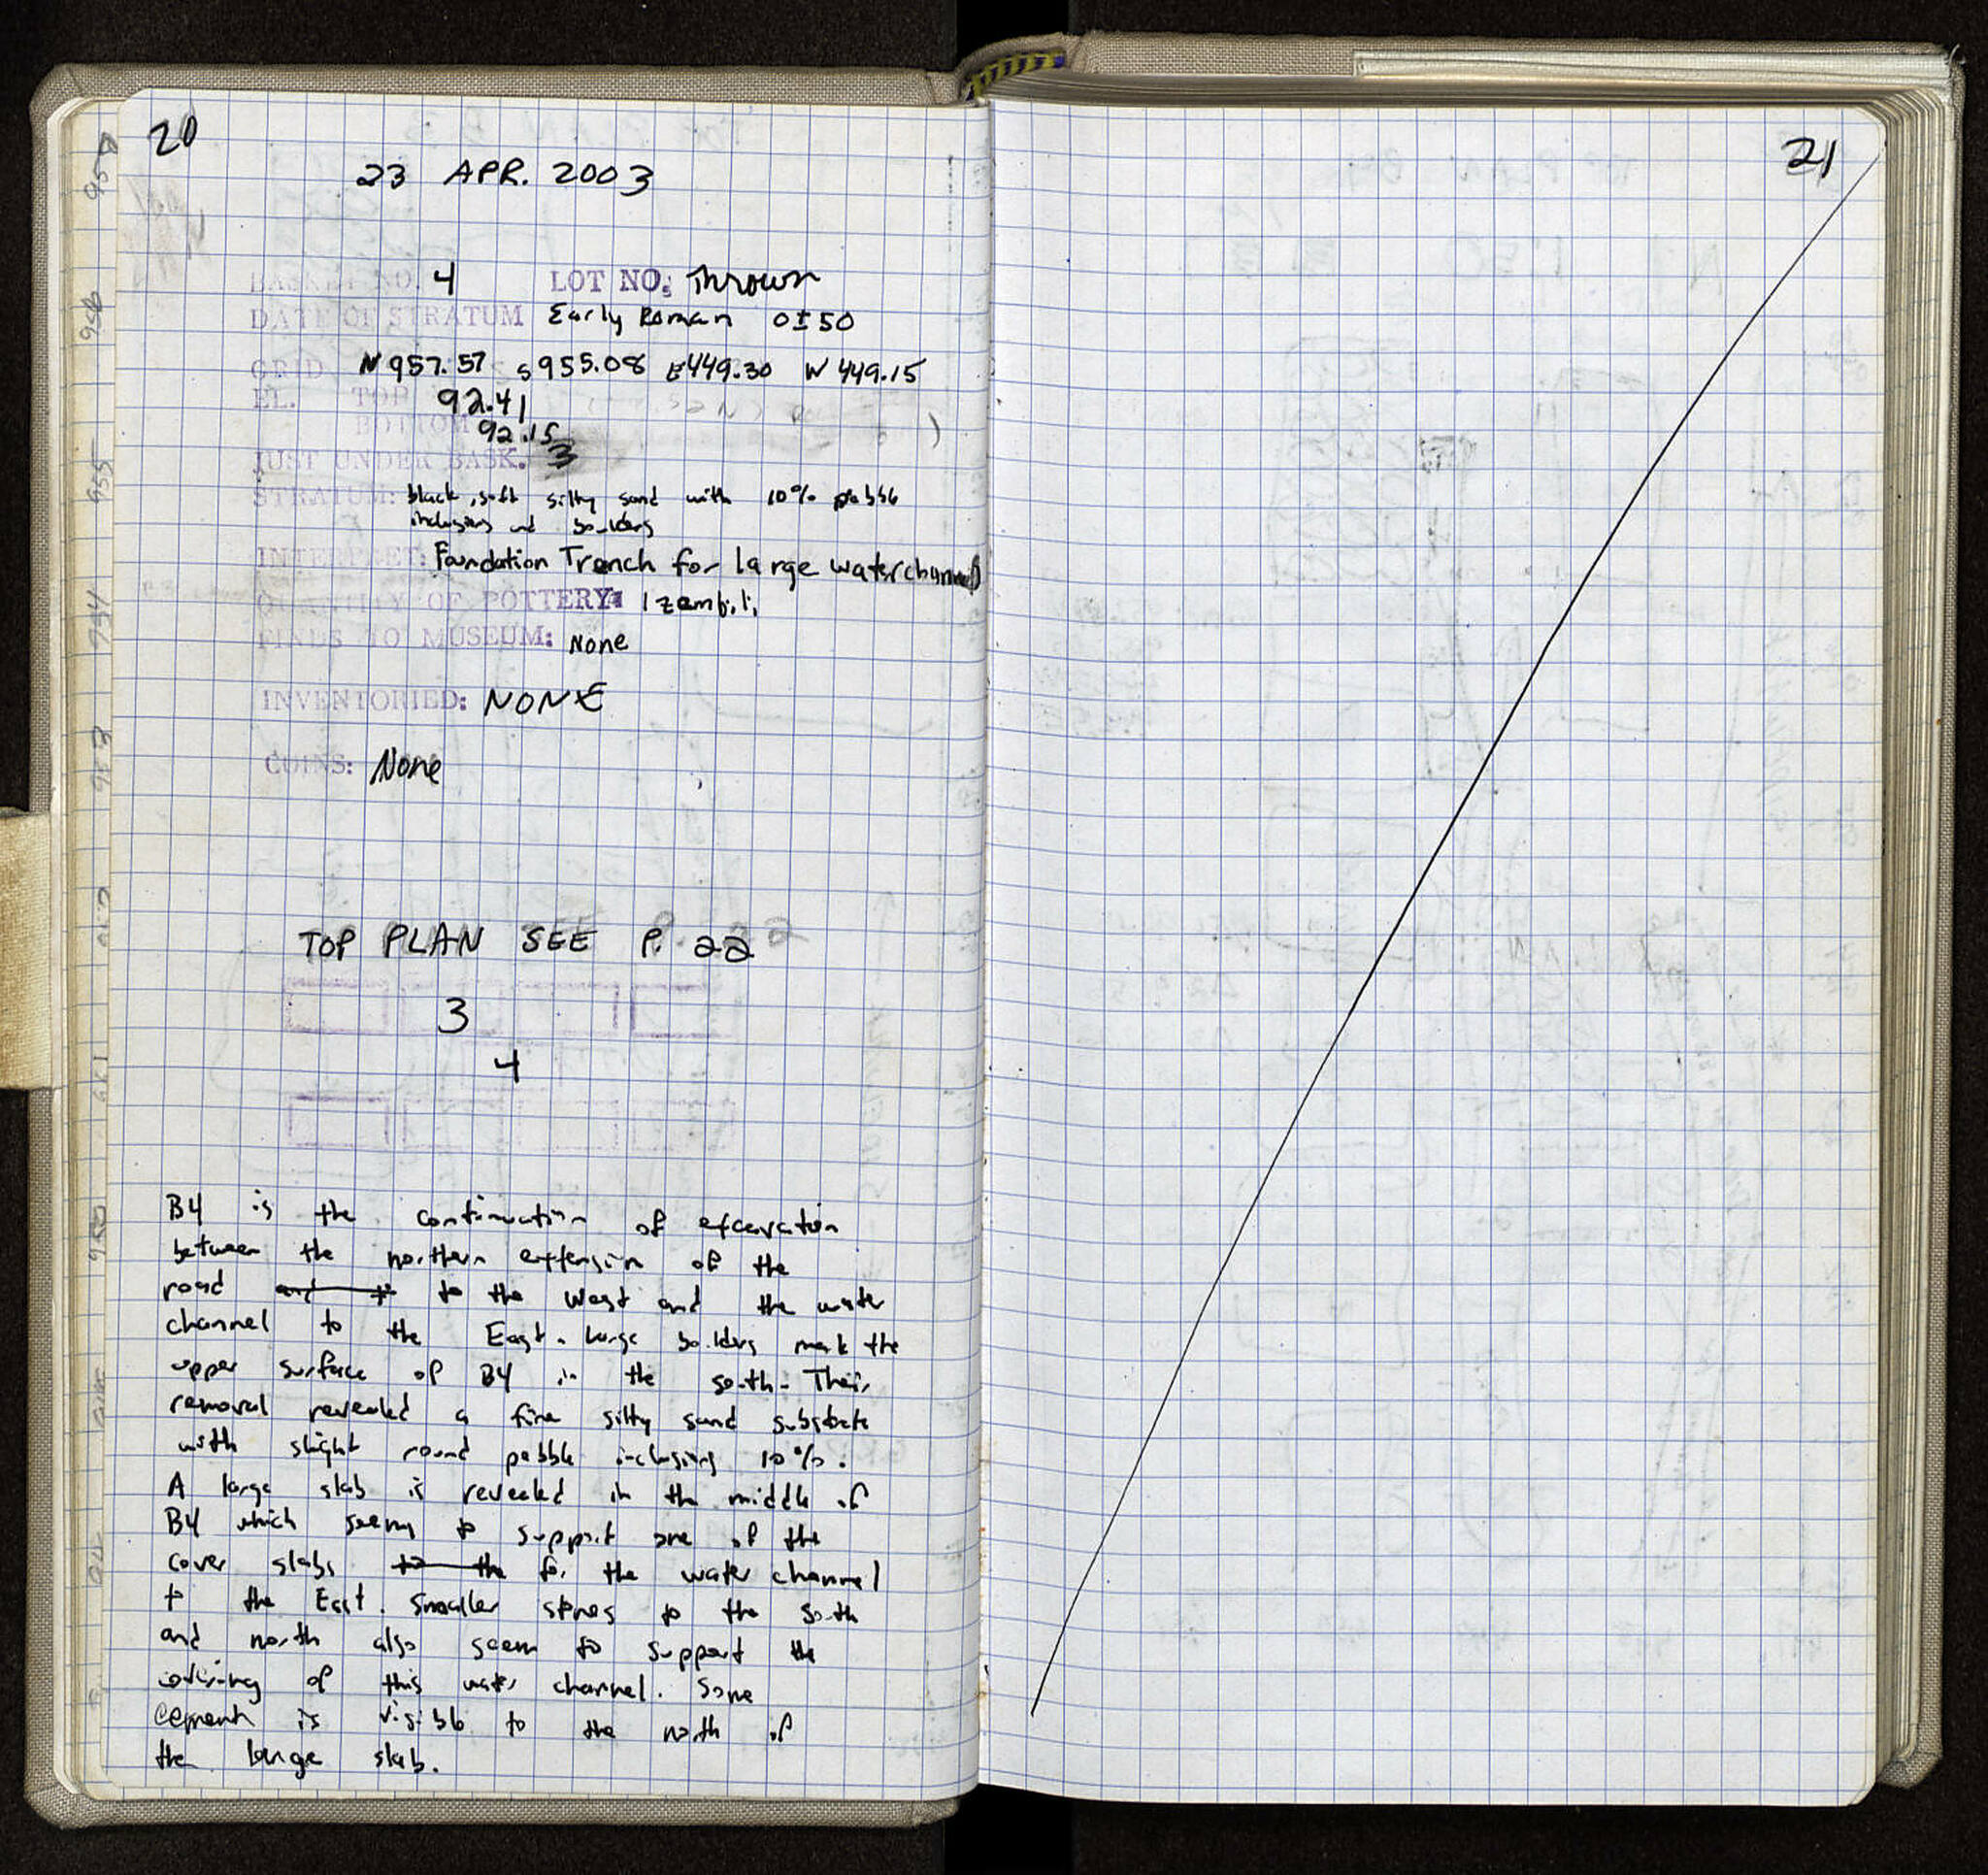 20
23 APR. 2003
BASKET NO. 4 LOT NO: Thrown
DATE OF STRATUM Early Roman 0±50
GRID N957.57 S955.08 E449.30 W449.15
EL. TOP 92.41
BOTTOM 92.15
JUST UNDER BASK. 3
STRATUM: black, soft silty sand with 10% pebble
inclusions and boulders
INTERPRET: Foundation Trench for large waterchannel
QUANTITY OF POTTERY: 1 zembili
FINDS TO MUSEUM: None
INVENTORIED: NONE
COINS: None
TOP PLAN SEE P. 22
3
4
B4 is the continuation of excavation
between the northern extension of the
road and to the West and the water
channel to the East. Large boulders mark the
upper surface of B4 in the south. Their
removal revealed a fine silty sand substrate
with slight round pebble inclusions 10%.
A large slab is revealed in the middle of
B4 which seems to support one of the
cover slabs to the for the water channel
to the East. Smaller stones to the South
and north also seem to support the
covering of this water channel. Some
cement is visible to the north of
the large slab.
21